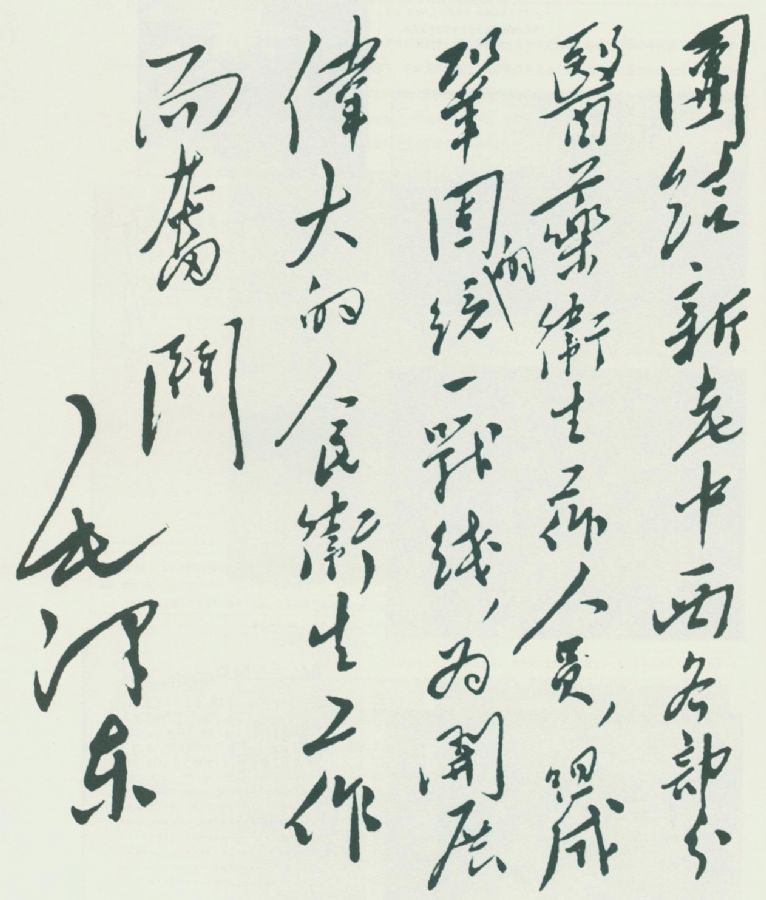 團结新老中西各部分
醫藥衛生工作人員，组成
鞏固的统一戰线，为開展
偉大的人民衛生工作
而奮鬥
毛泽东